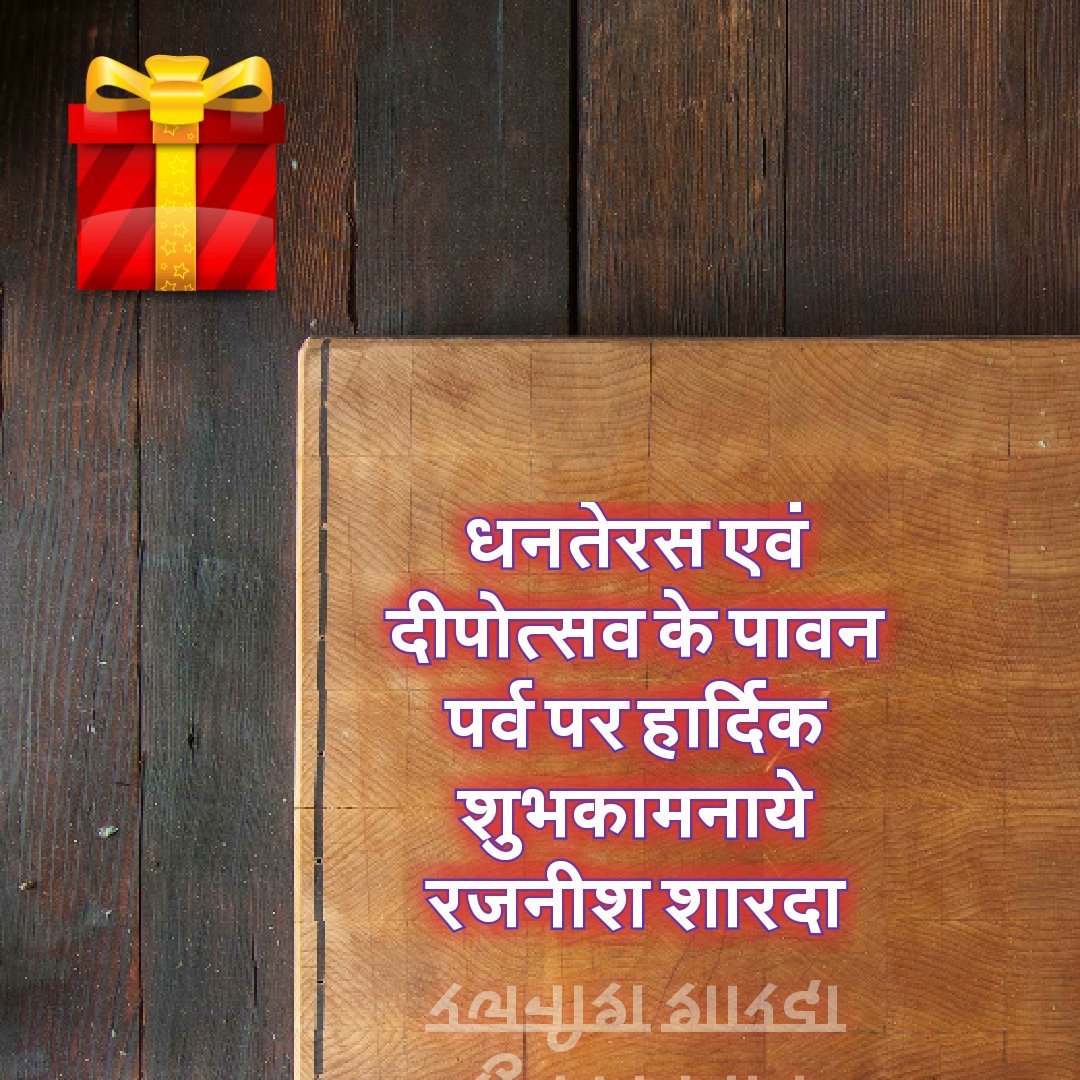 धनतेरस एवं
दीपोत्सव के पावन
पर्व पर हार्दिक
शुभकामनाये
रजनीश शारदा